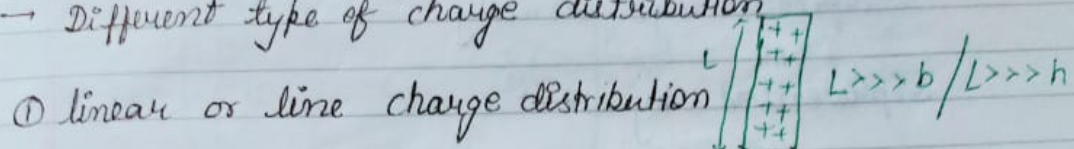 → Different type of charge distribution
① linear or line charge distribution L ++ ++ ++ ++ ++ L>>>b/L>>>h